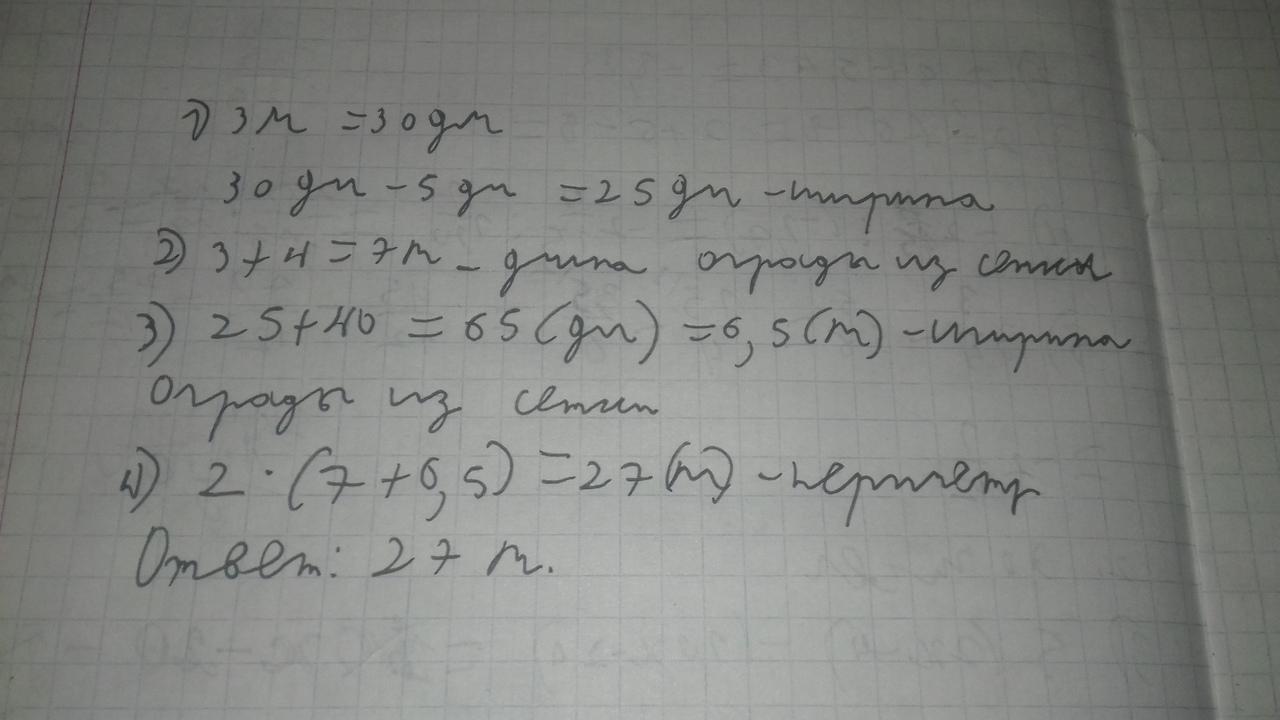 1) 3м = 30 дм
30 дм - 5 дм = 25 дм - ширина
2) 3 + 4 = 7 м - длина ограды из сетки
3) 25 + 40 = 65 (дм) = 6,5 (м) - ширина
ограды из сетки
4) 2 · (7 + 6,5) = 27 (м) - периметр
Ответ: 27 м.